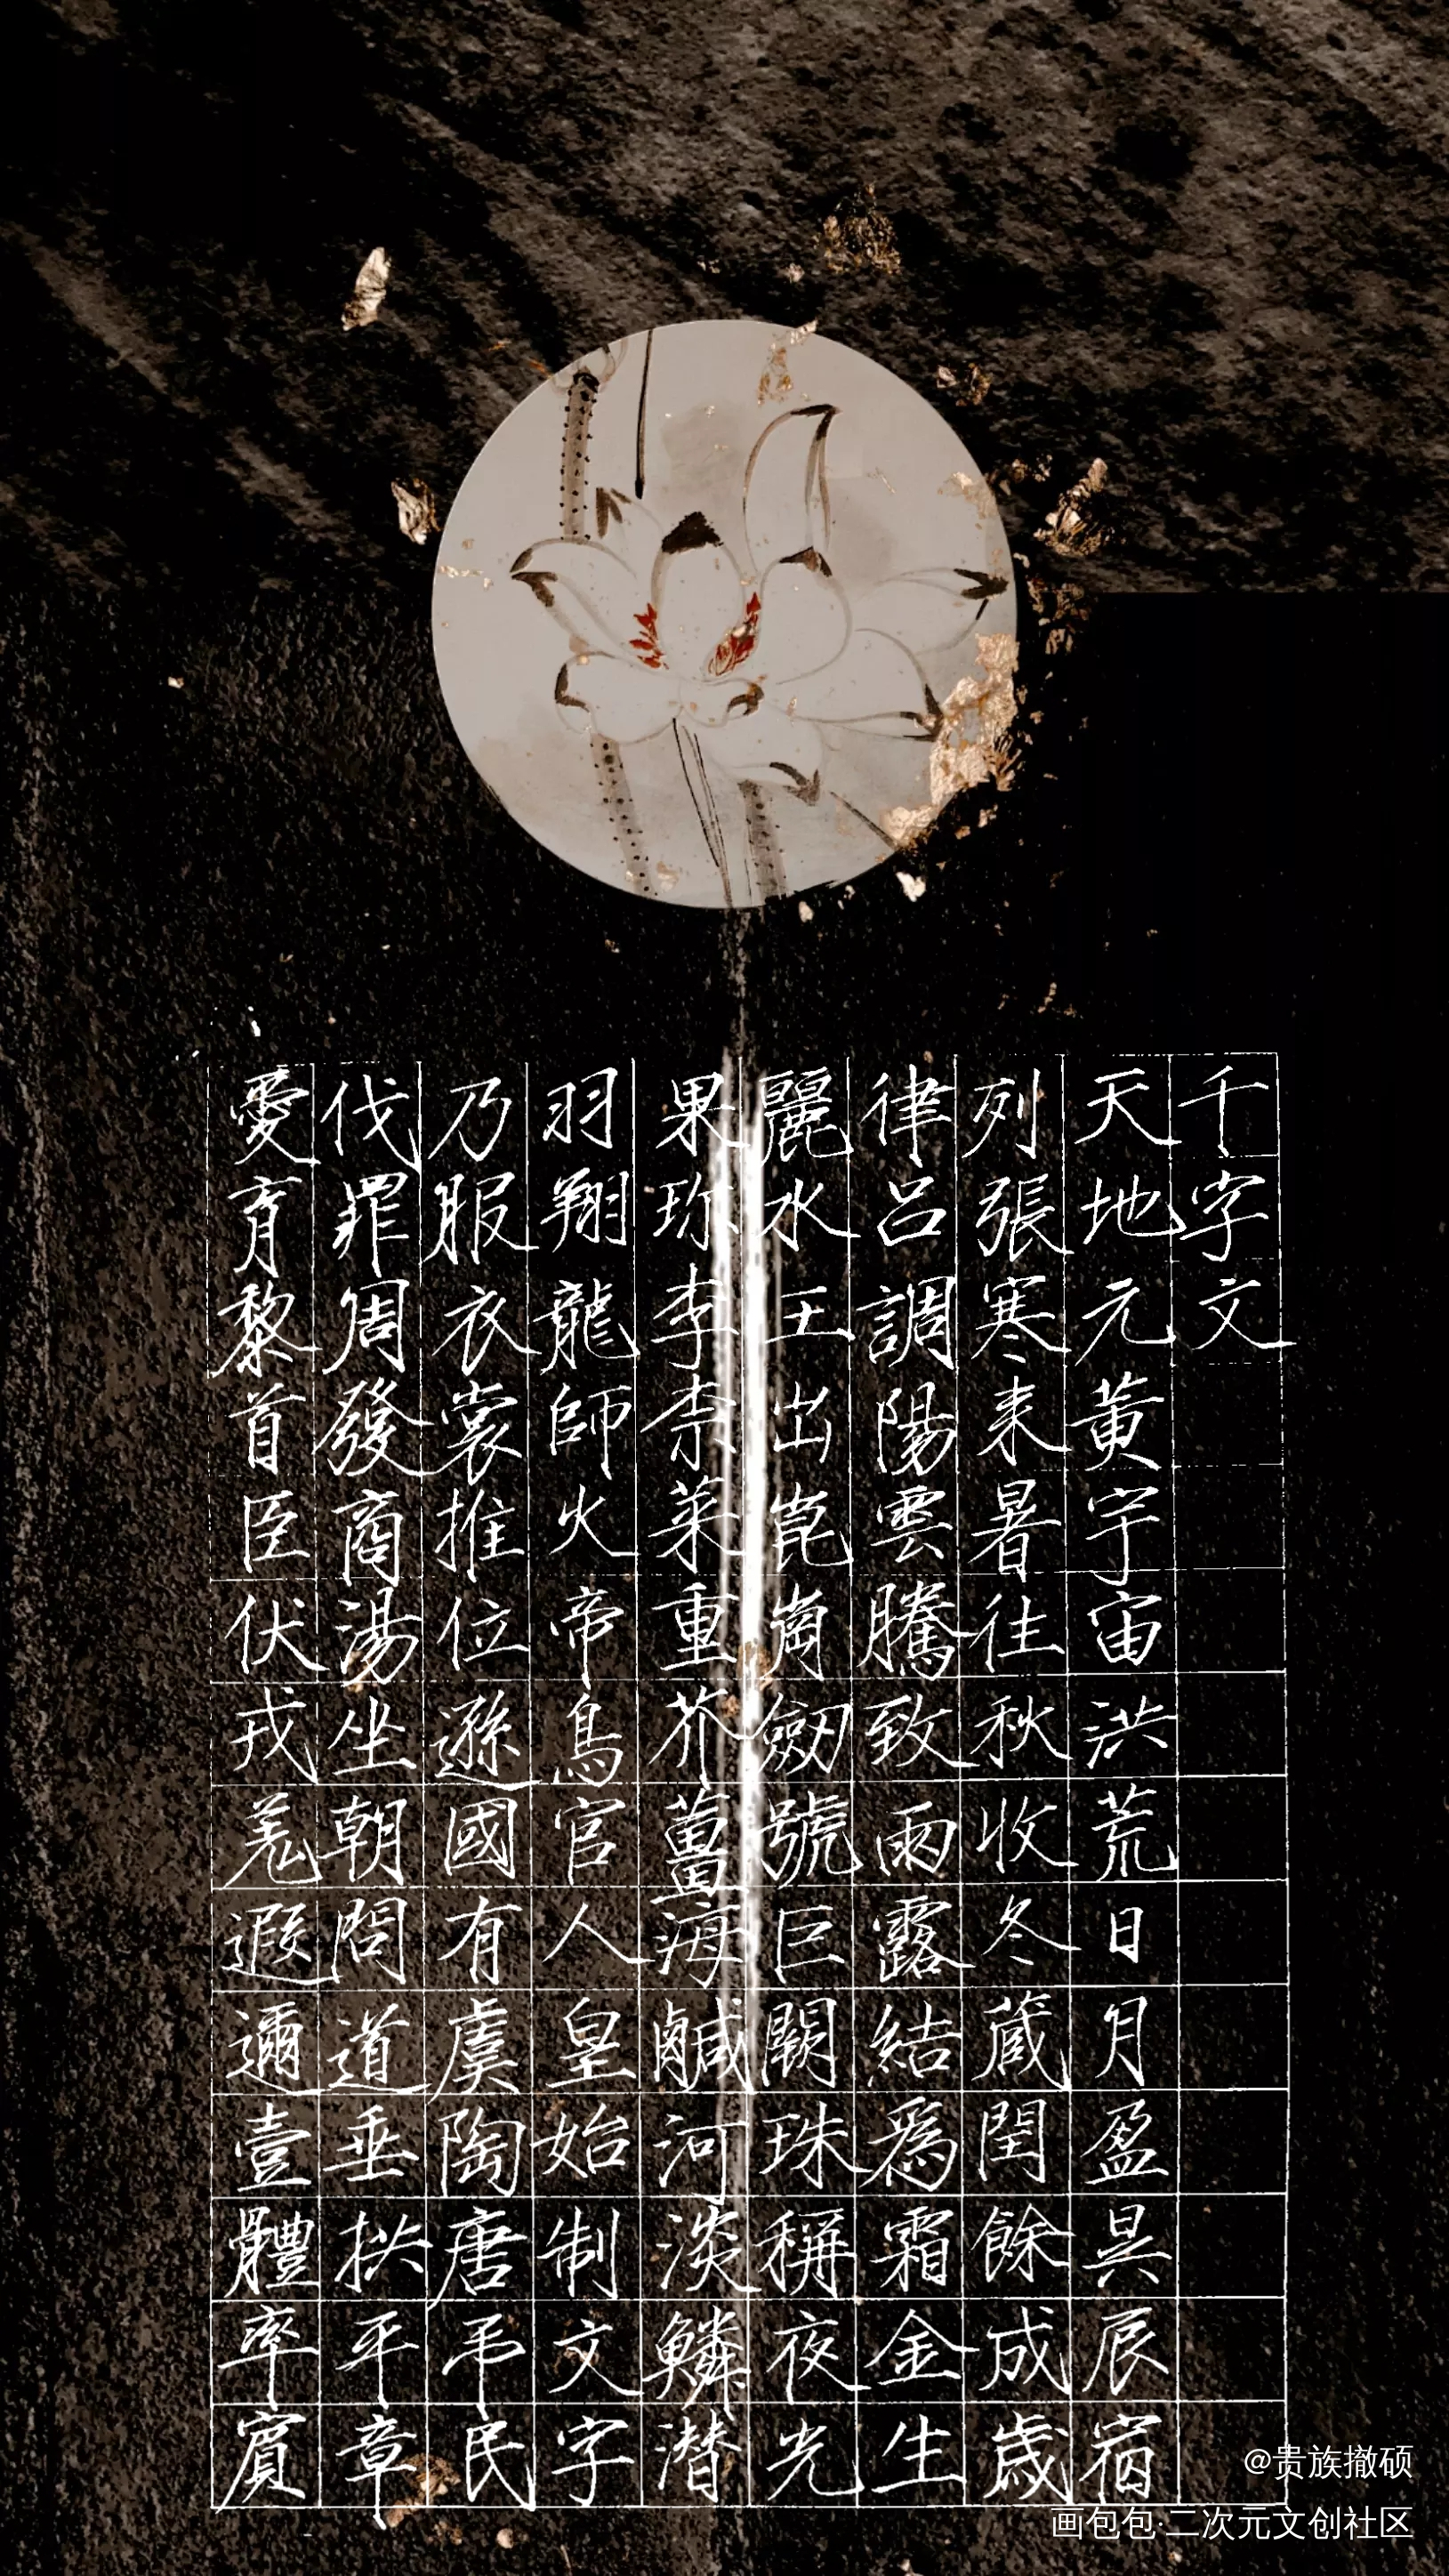 千字文
天地元黄宇宙洪荒日月盈昃辰宿
列張寒来暑往秋收冬蔵閏餘成歲
律呂調陽雲騰致雨露結爲霜金生
麗水玉出崑崗劒號巨闕珠稱夜光
果珍李柰菜重芥薑海鹹河淡鱗潜
羽翔龍師火帝鳥官人皇始制文字
乃服衣裳推位遜國有虞陶唐弔民
伐罪周發商湯坐朝問道垂拱平章
愛育黎首臣伏戎羌遐邇壹體率賓
@贵族撤硕
画包包·二次元文创社区